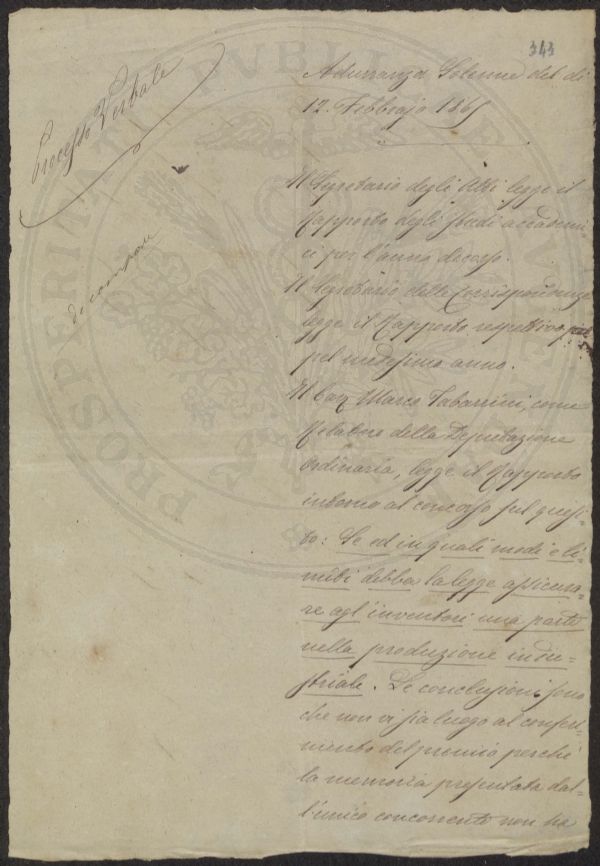 343
Processo Verbale
Adunanza Solenne del dì
12. Febbrajo 1865
Il Segretario degli Atti legge il
Rapporto degli studi accademi-
ci per l'anno decorso.
Il Segretario delle Corrispondenze
legge il Rapporto respettivo
pel medesimo anno.
Il Cav. Marco Tabarrini, come
Relatore della Deputazione
ordinaria, legge il Rapporto
intorno al concorso sul quesi-
to: Se ed in quali modi e li-
miti debba la legge assicura-
re agl'inventori una parte
nella produzione indu-
striale. Le conclusioni sono
che non vi sia luogo al conferi-
mento del premio perchè
la memoria presentata dal-
l'unico concorrente non ha
PROSPERITATI PVBLICAE